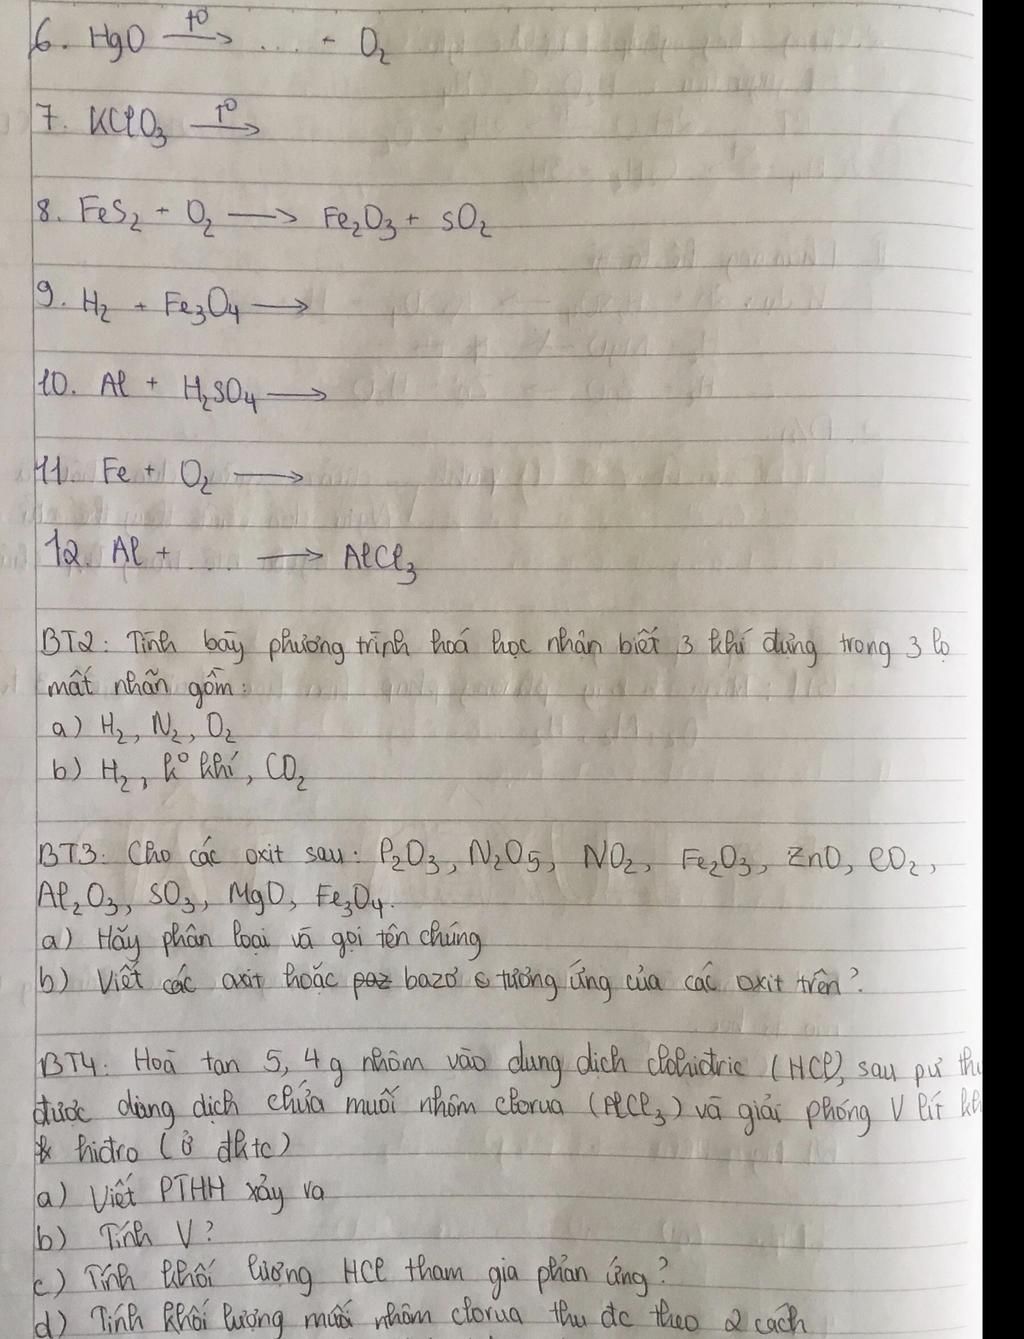 6. HgO —t°→ ... + O₂
7. KClO₃ —t°→
8. FeS₂ + O₂ → Fe₂O₃ + SO₂
9. H₂ + Fe₃O₄ →
10. Al + H₂SO₄ →
11. Fe + O₂ →
12. Al + ... → AlCl₃
BT2: Tình bày phương trình hoá học nhận biết 3 khí đựng trong 3 lọ
mất nhãn gồm:
a) H₂, N₂, O₂
b) H₂, k° khí, CO₂
BT3: Cho các oxit sau: P₂O₃, N₂O₅, NO₂, Fe₂O₃, ZnO, CO₂,
Al₂O₃, SO₃, MgO, Fe₃O₄.
a) Hãy phân loại và gọi tên chúng
b) Viết các axit hoặc bazơ tương ứng của các oxit trên?
BT4: Hoà tan 5,4g nhôm vào dung dịch clohidric (HCl), sau pư
được dùng dịch chứa muối nhôm clorua (AlCl₃) và giải phóng V lít
hiđro (ở đktc)
a) Viết PTHH xảy ra
b) Tính V?
c) Tính khối lượng HCl tham gia phản ứng?
d) Tính khối lượng muối nhôm clorua thu đc theo 2 cách